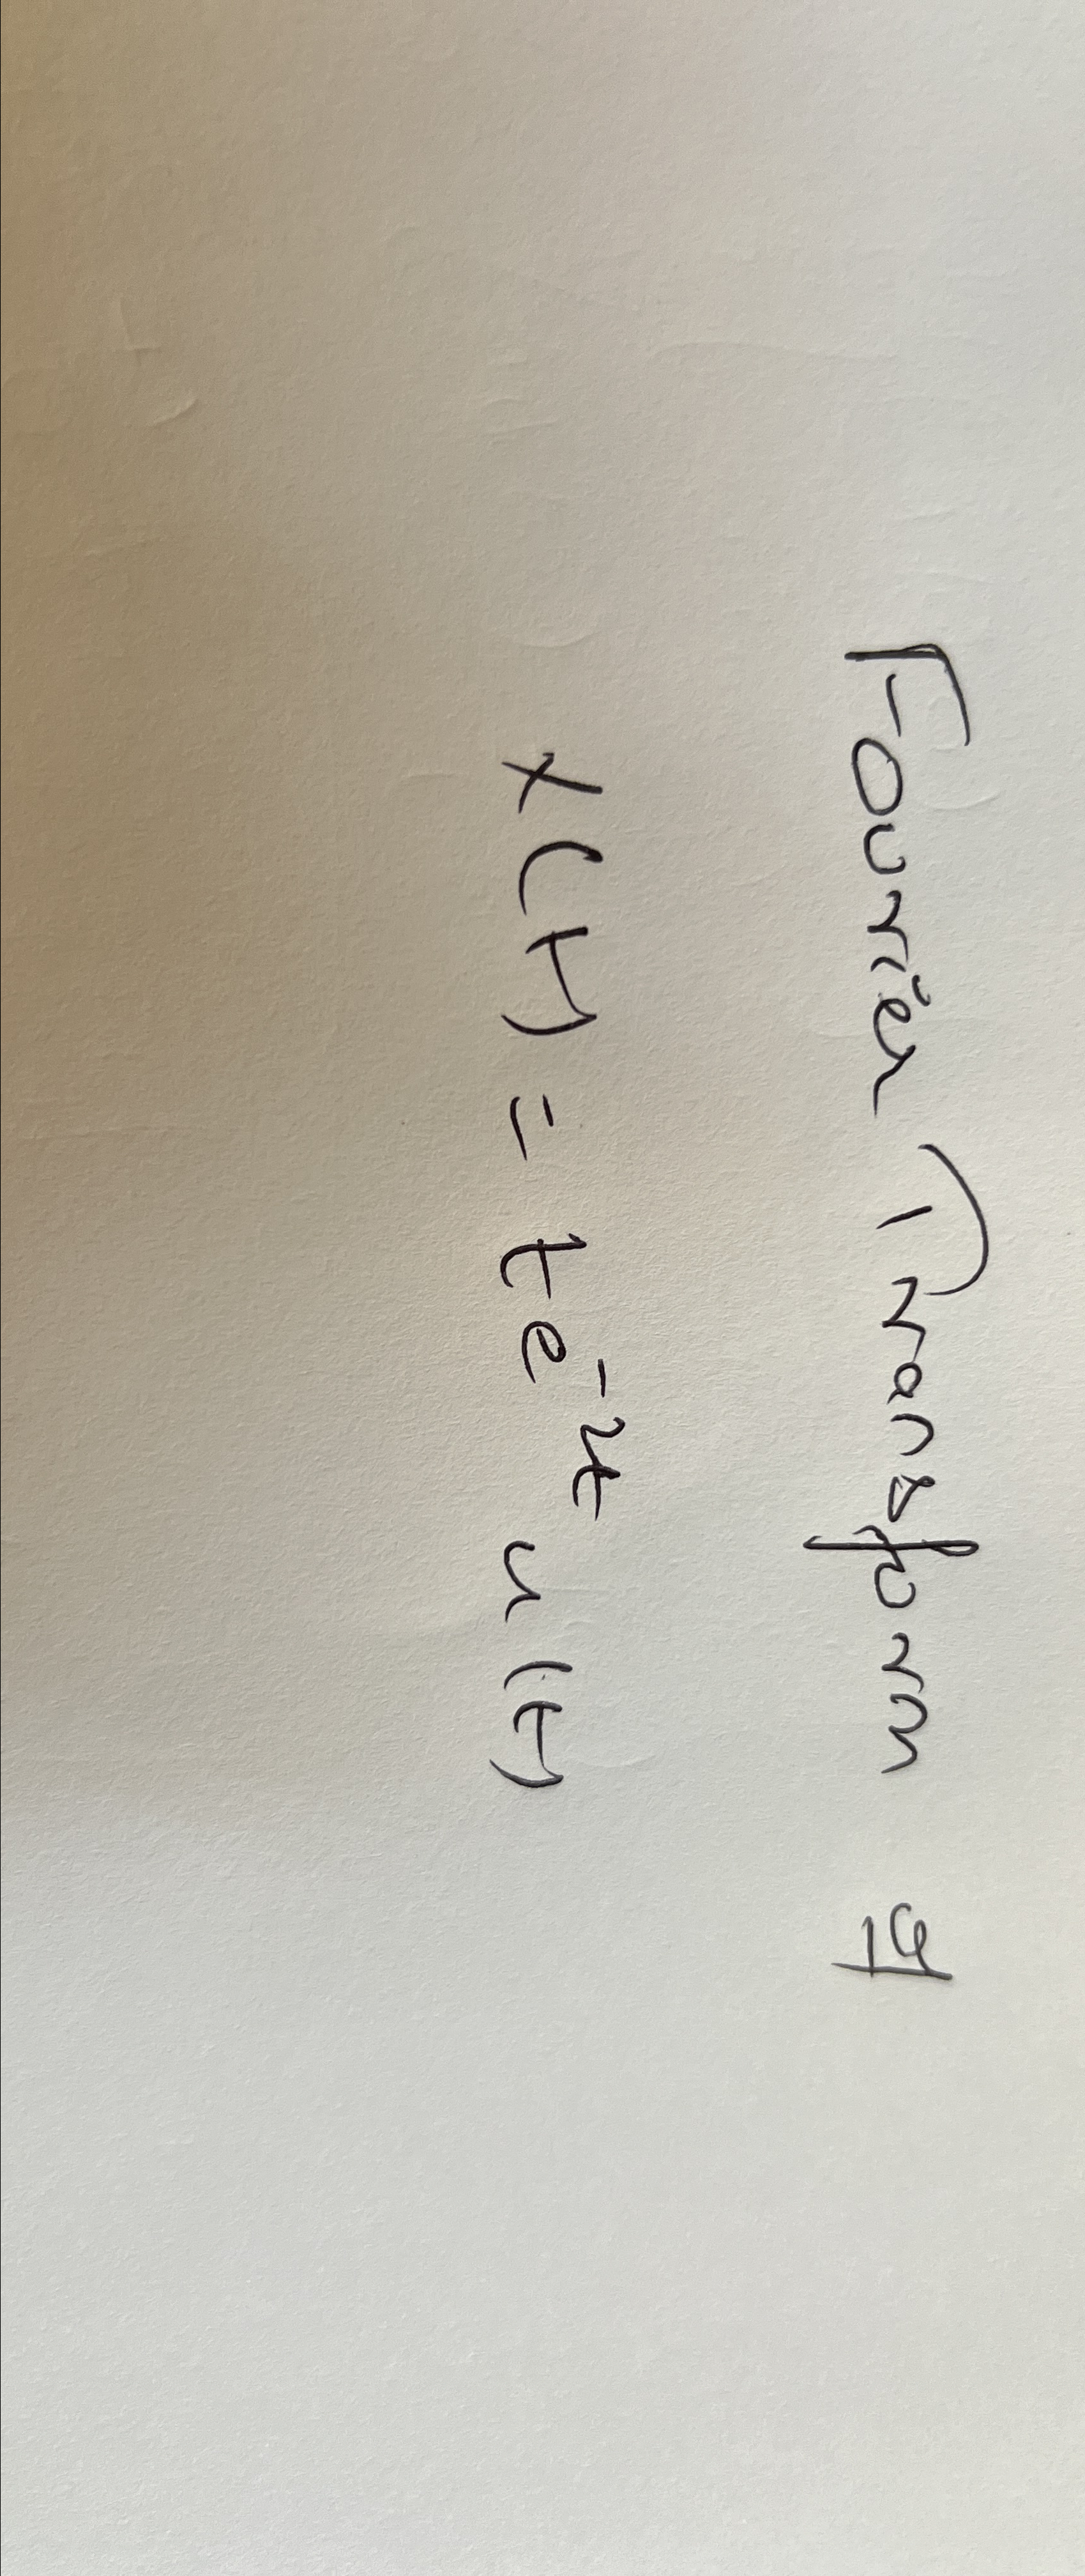 Fourier Transform of
x(t) = te^-2t u(t)